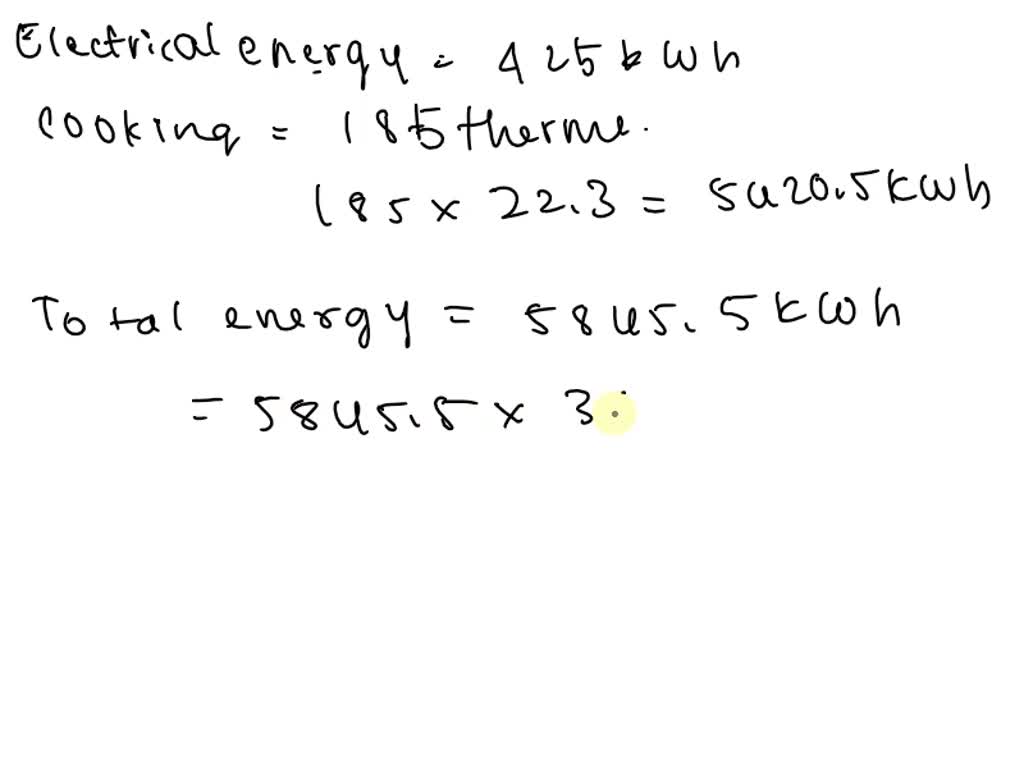 Electrical energy = 425 kWh
cooking = 185 therme.
185 × 22.3 = 5420.5 kWh
Total energy = 5845.5 kWh
= 5845.5 × 3